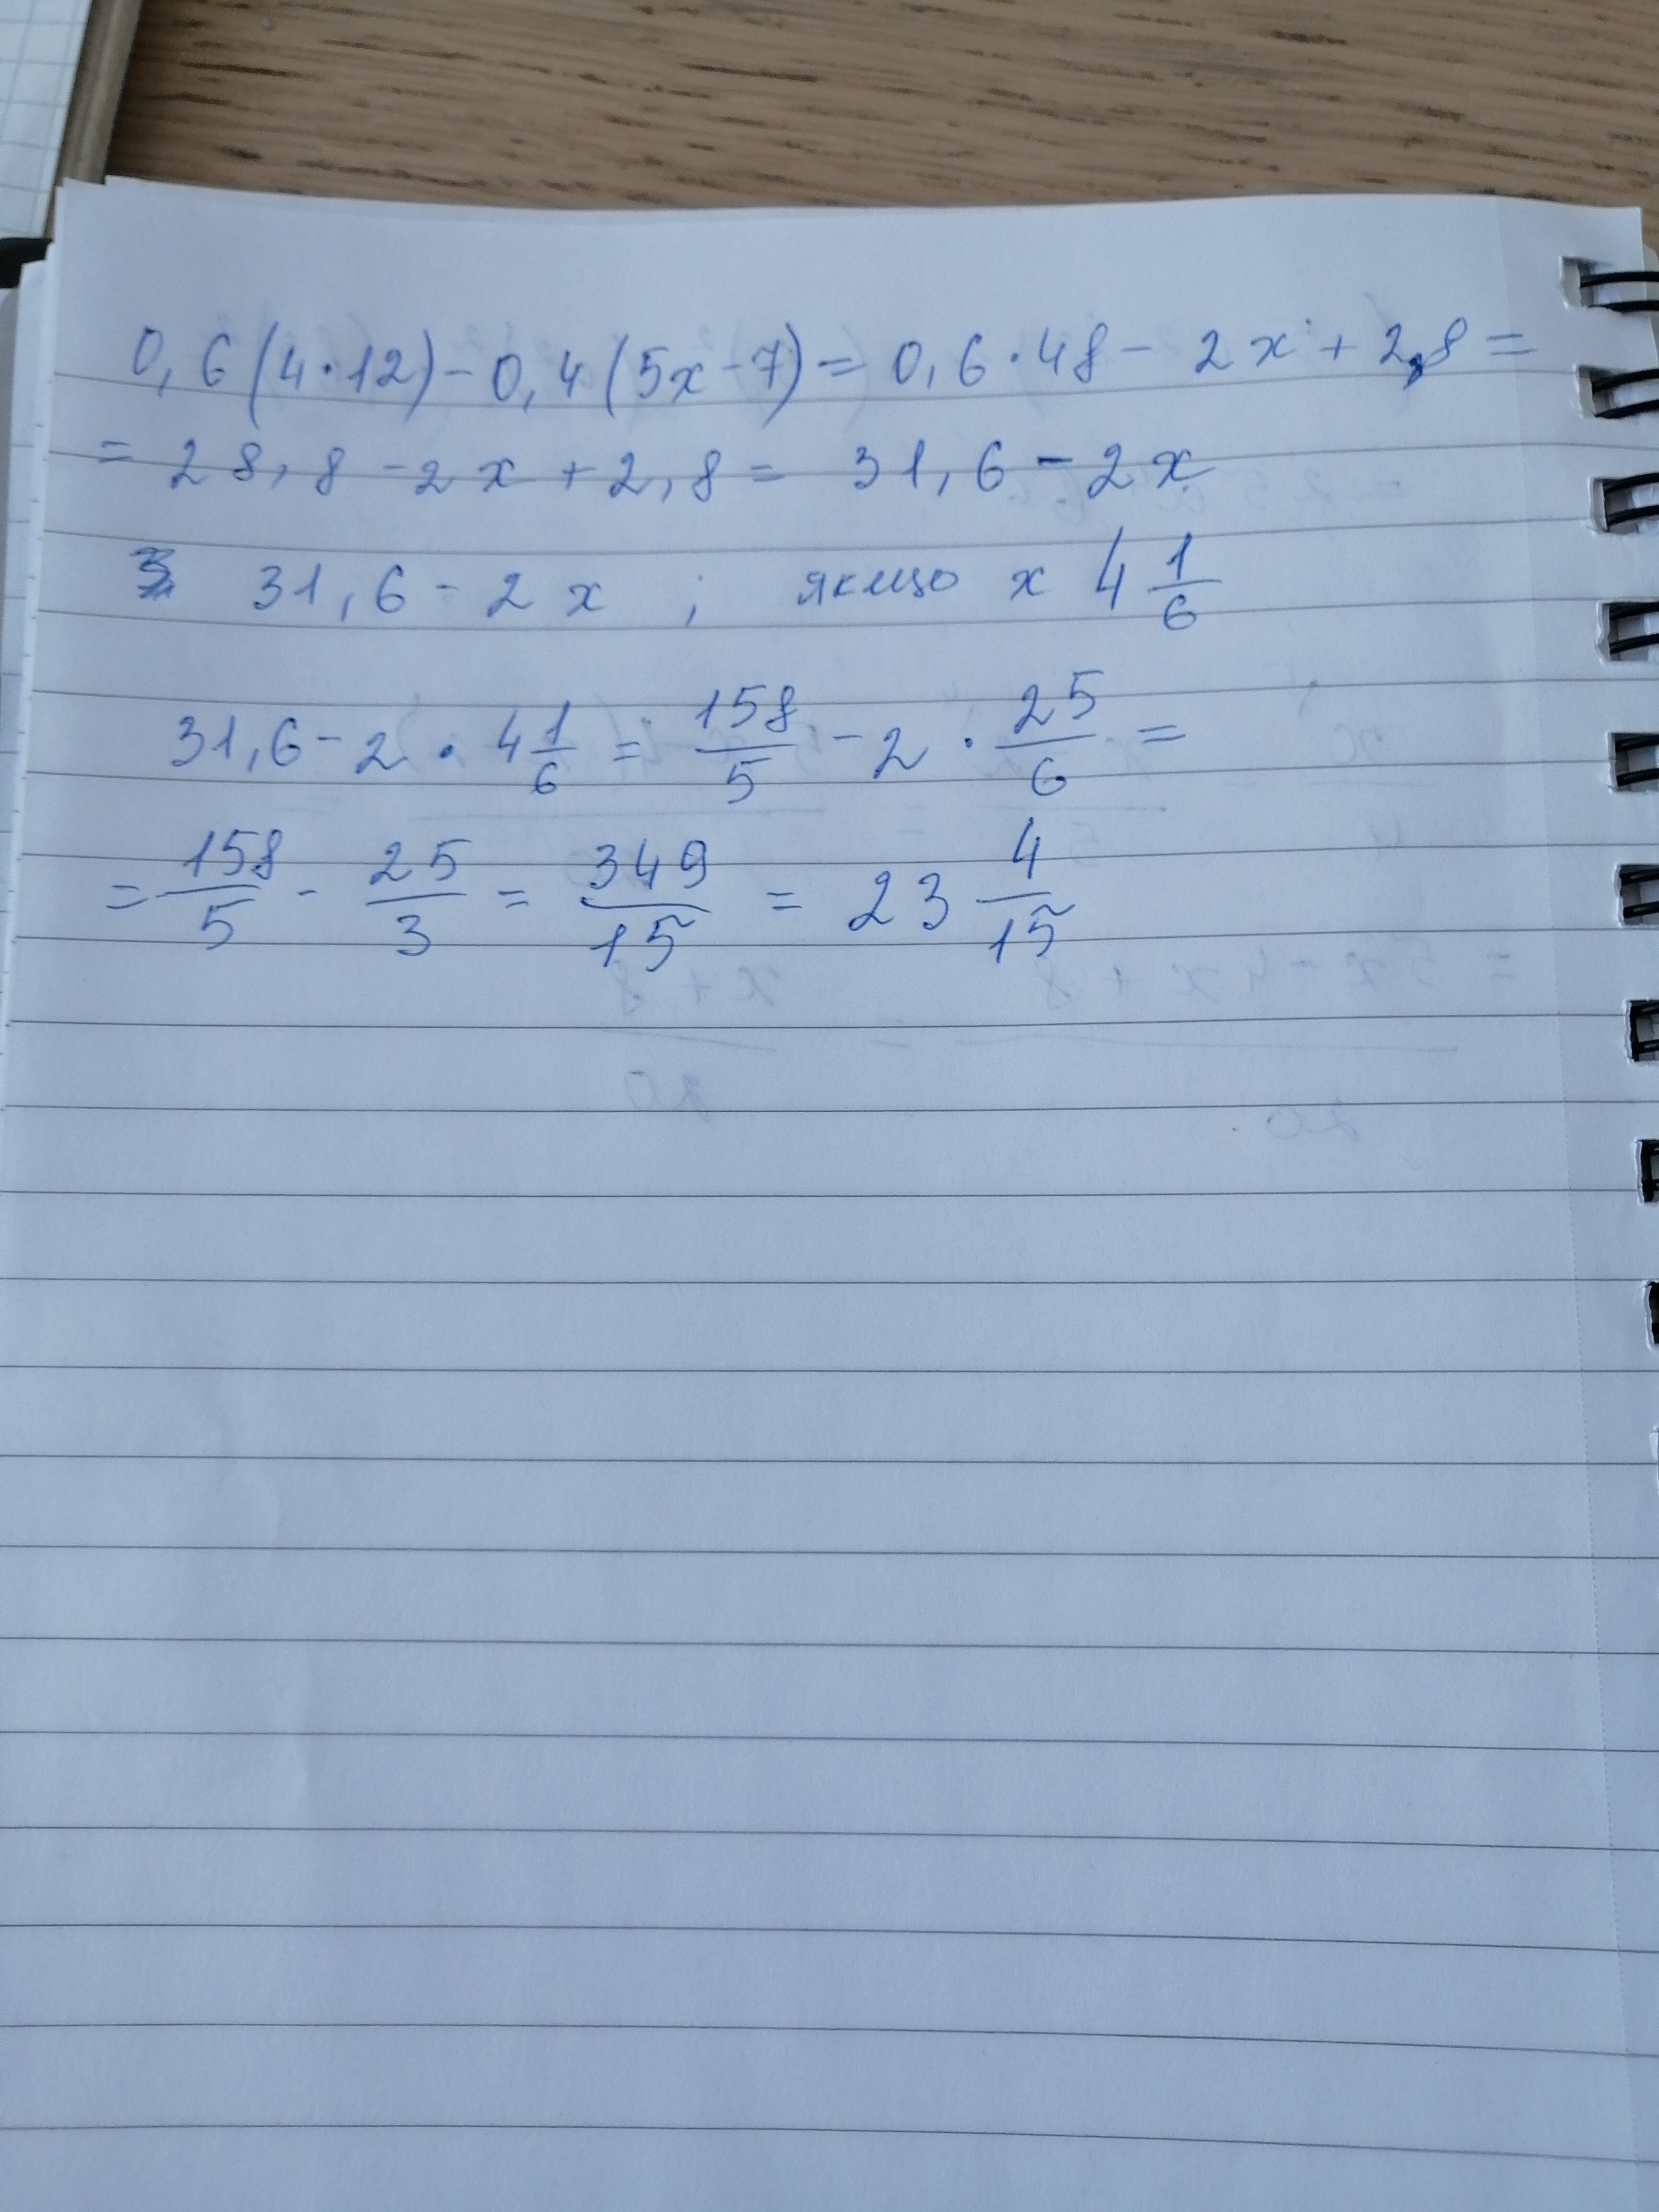 0,6(4·12)-0,4(5x-7)=0,6·48-2x+2,8=
=28,8-2x+2,8=31,6-2x
31,6-2x ; якщо x 4 1/6
31,6-2·4 1/6 = 158/5 -2· 25/6 =
= 158/5 - 25/3 = 349/15 = 23 4/15